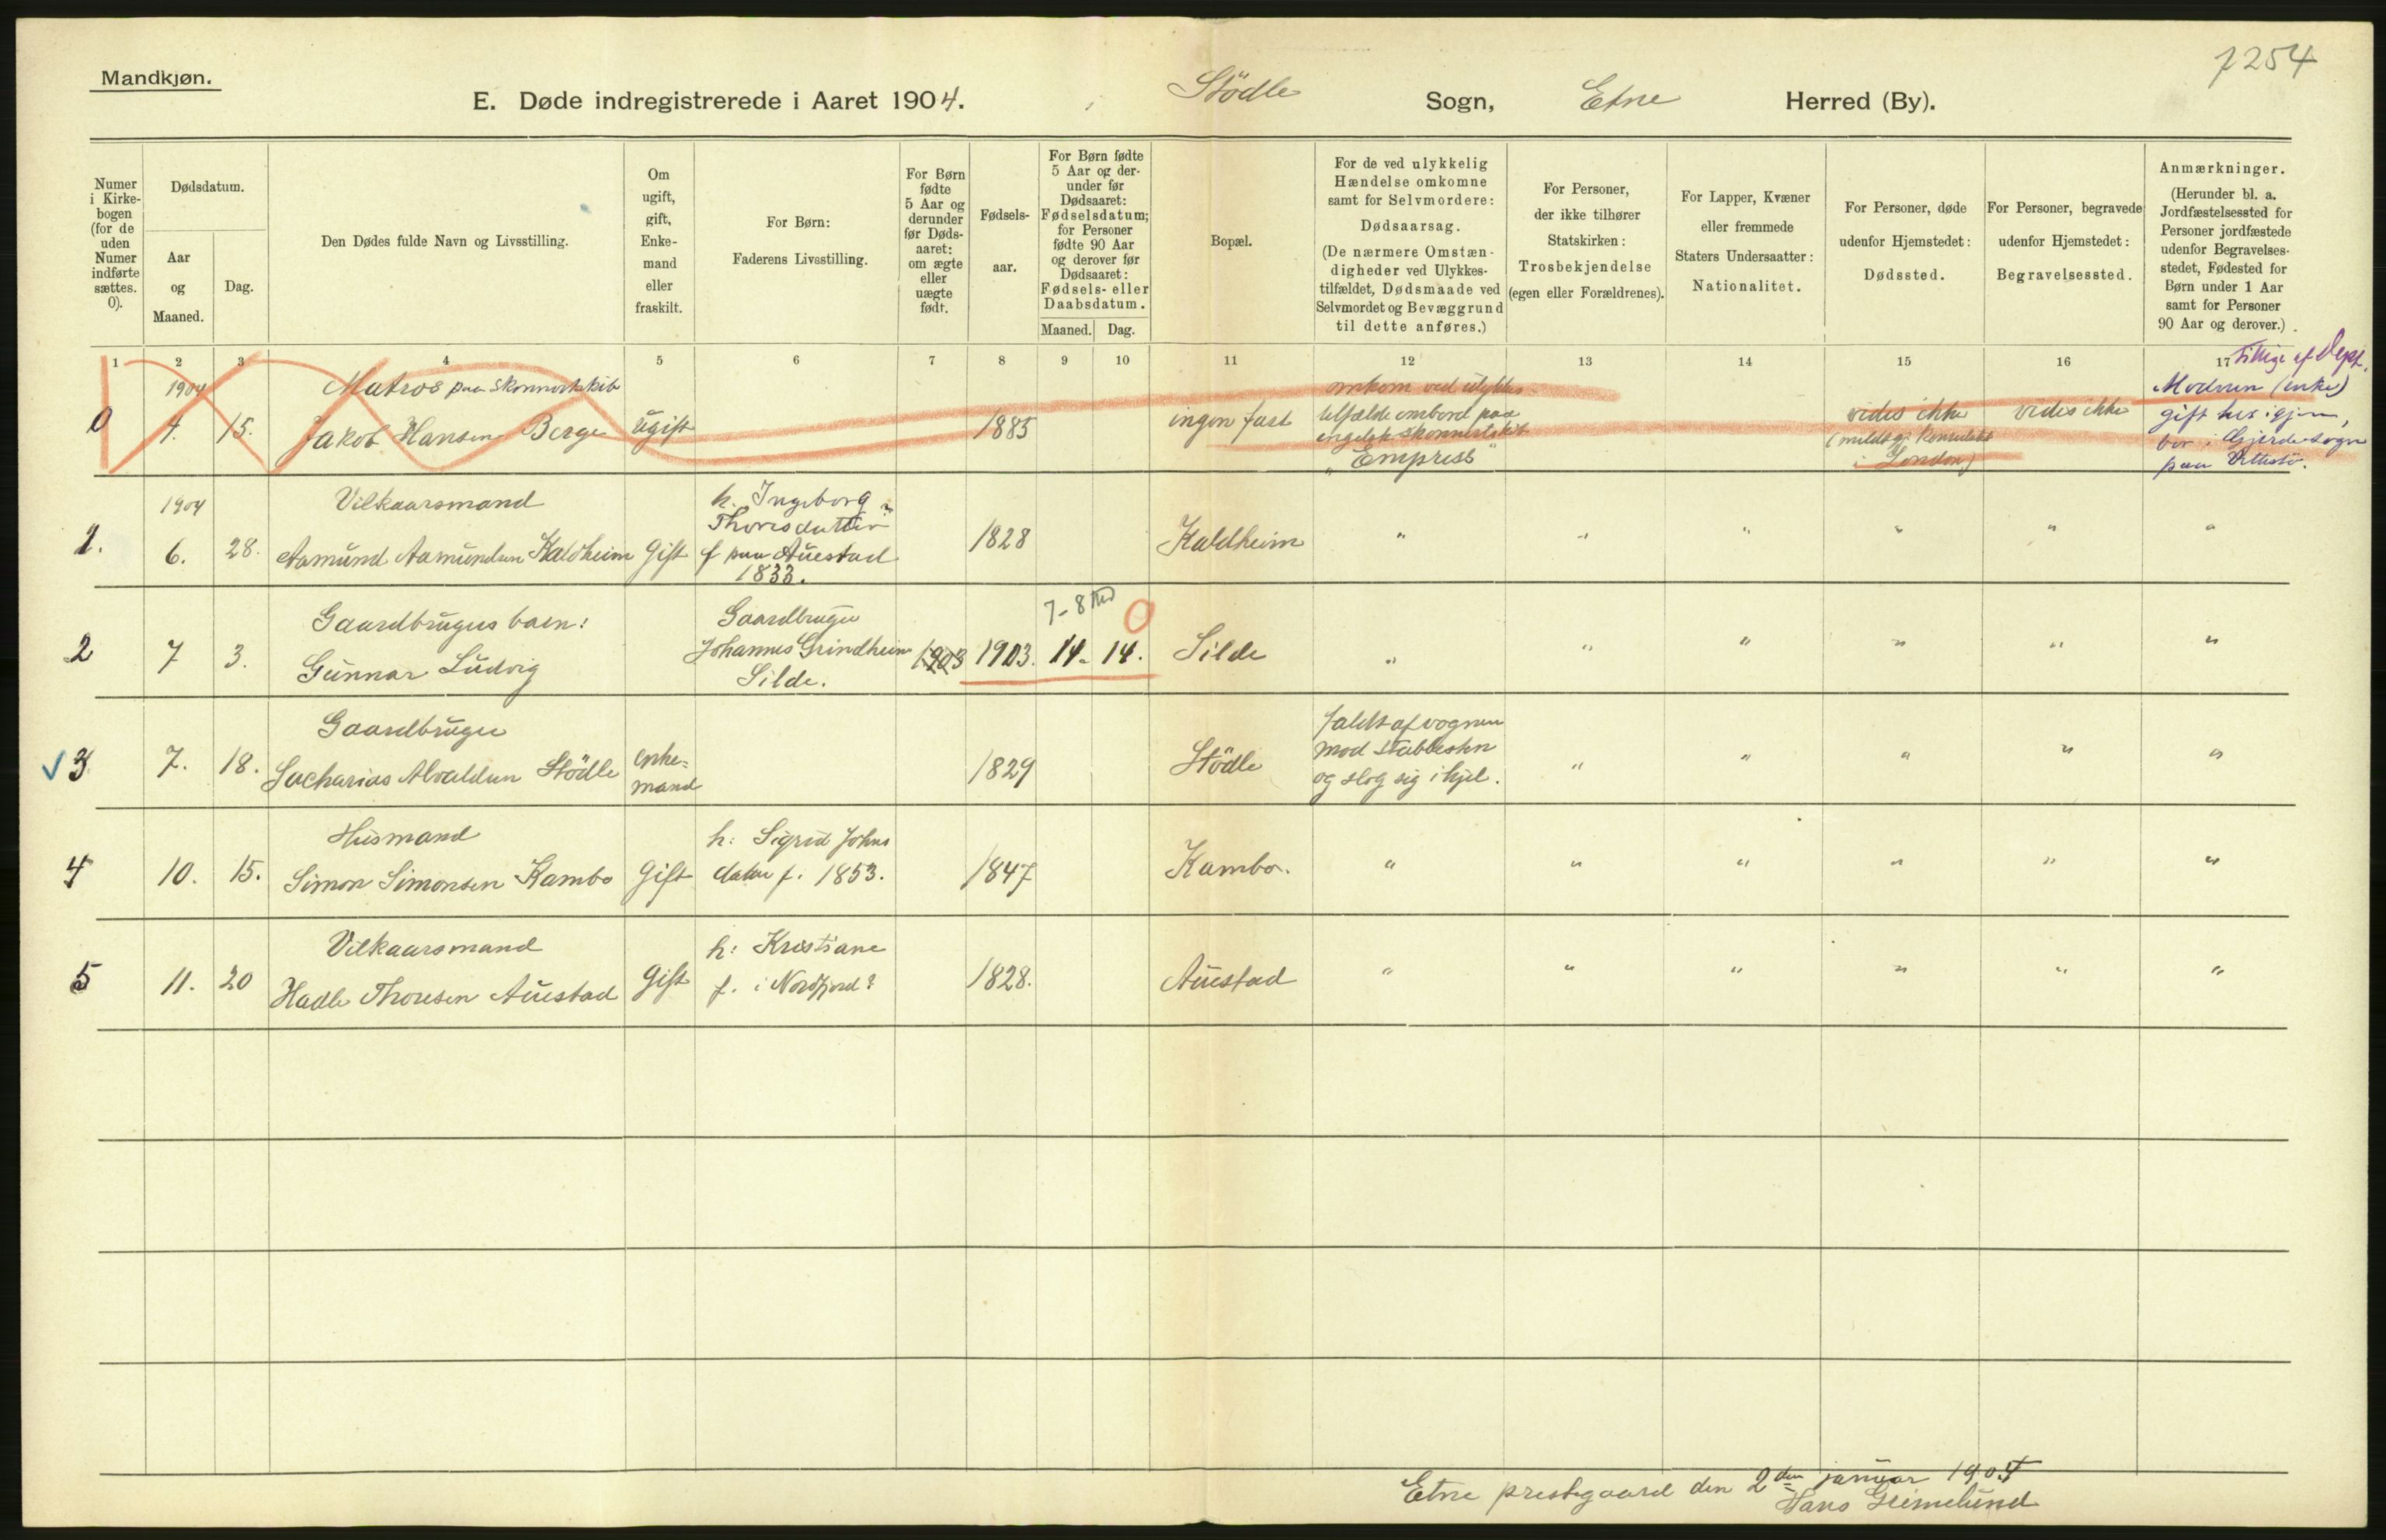 7254
Mandkjøn.
E. Døde indregistrerede i Aaret 1904. Stödle Sogn, Etne Herred (By).
Numer
i Kirke-
bogen
(for de
uden
Numer
indførte
sættes.
0).
Dødsdatum.
Aar
og
Maaned.
Dag.
Den Dødes fulde Navn og Livsstilling.
Om
ugift,
gift,
Enke-
mand
eller
fraskilt.
For Børn:
Faderens Livsstilling.
For Børn
fødte
5 Aar og
derunder
før Døds-
aaret:
om ægte
eller
uægte
født.
Fødsels-
aar.
For Børn fødte
5 Aar og der-
under før
Dødsaaret:
Fødselsdatum;
for Personer
fødte 90 Aar
og derover før
Dødsaaret:
Fødsels- eller
Daabsdatum.
Maaned. Dag.
Bopæl.
For de ved ulykkelig
Hændelse omkomne
samt for Selvmordere:
Dødsaarsag.
(De nærmere Omstæn-
digheder ved Ulykkes-
tilfældet, Dødsmaade ved
Selvmordet og Bevæggrund
til dette anføres.)
For Personer,
der ikke tilhører
Statskirken:
Trosbekjendelse
(egen eller Forældrenes).
For Lapper, Kvæner
eller fremmede
Staters Undersaatter:
Nationalitet.
For Personer, døde
udenfor Hjemstedet:
Dødssted.
For Personer, begravede
udenfor Hjemstedet:
Begravelsessted.
Anmærkninger.
(Herunder bl. a.
Jordfæstelsessted for
Personer jordfæstede
udenfor Begravelses-
stedet, Fødested for
Børn under 1 Aar
samt for Personer
90 Aar og derover.)
1 2 3 4 5 6 7 8 9 10 11 12 13 14 15 16 17
0
1904
4. 15.
Matros paa skonnertskib
Jakob Hansen Berge
ugift
1885
ingen fast
omkom ved ulykkes-
tilfælde ombord paa
engelsk skonnertskib
"Empress"
vides ikke
(meldt gj. konsulatet
i London)
vides ikke
Moderen (enke)
gift her igjen,
bor i Gjerde sogn
paa
1.
1904
6. 28.
Vilkaarsmand
Aamund Aamundsen Kaldheim
Gift
h. Ingeborg
Thoresdatter
f paa Auestad
1833.
1828
Kaldheim
" " " " " "
2
7 3.
Gaardbrugers barn:
Gunnar Ludvig
Gaardbruger
Johannes Grindheim
Silde.
1903
1903.
7-8
14. 14.
0
Silde
" " " " " "
3
7. 18.
Gaardbruger
Sacharias Alvaldsen Stödle
enke=
mand
1829
Stödle
faldt af vognen
mod stabbesten
og slog sig ihjel.
" " " " "
4
10. 15.
Husmand
Simon Simonsen Kambo
Gift
h: Sigrid Johns
datter f. 1853.
1847
Kambo.
" " " " " "
5
11. 20
Vilkaarsmand
Hadle Thoresen Auestad
Gift
h: Kristiane
f. i Nordfjord?
1828.
Auestad
" " " " " "
Etne prestegaard den 2den januar 1904
Hans Grimelund